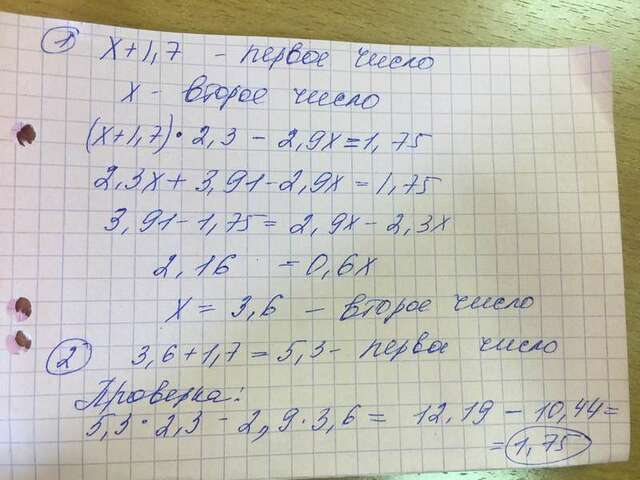 1 x+1,7 - первое число
x - второе число
(x+1,7)·2,3 - 2,9x=1,75
2,3x+3,91-2,9x=1,75
3,91-1,75=2,9x-2,3x
2,16 =0,6x
x = 3,6 - второе число
2 3,6+1,7=5,3- первое число
Проверка:
5,3·2,3-2,9·3,6= 12,19-10,44=
=1,75